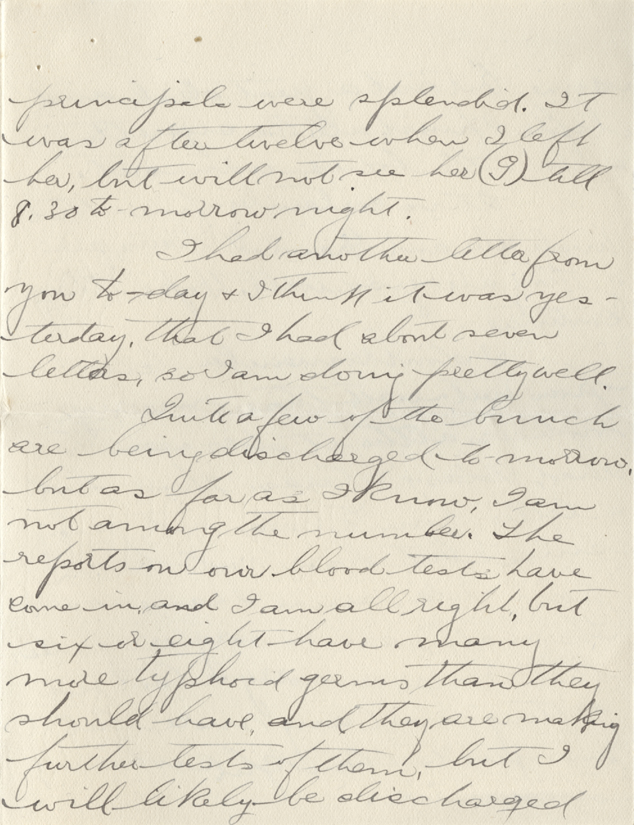 principals were splendid. It
was after twelve when I left
her, but will not see her (I) till
8.30 to-morrow night.
I had another letter from
you to-day & I think it was yes-
terday, that I had about seven
letters, so I am doing pretty well.
Quite a few of the bunch
are being discharged to-morrow,
but as far as I know, I am
not among the number. The
reports on our blood tests have
come in, and I am all right, but
six or eight have many
more typhoid germs than they
should have, and they are making
further tests of them, but I
will likely be discharged